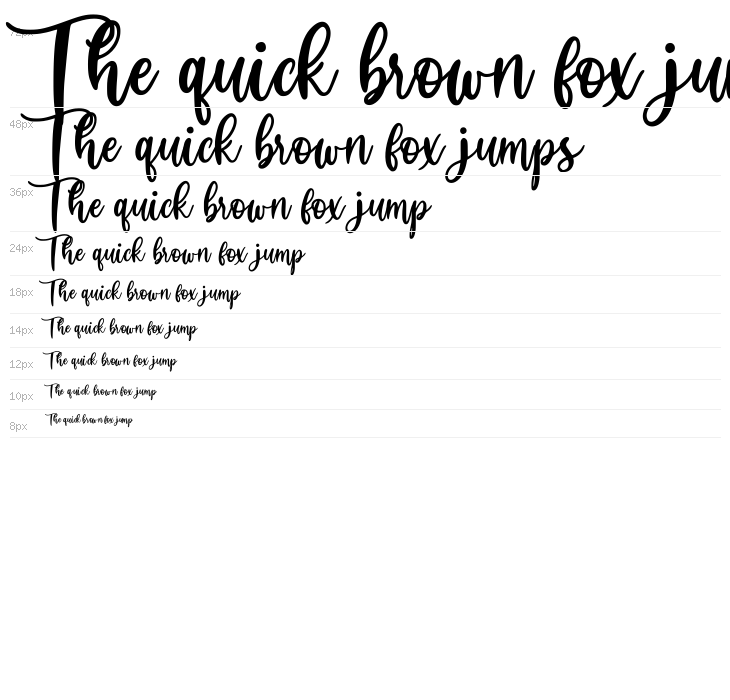 72px The quick brown fox jum
48px The quick brown fox jumps
36px The quick brown fox jump
24px The quick brown fox jump
18px The quick brown fox jump
14px The quick brown fox jump
12px The quick brown fox jump
10px The quick brown fox jump
8px The quick brown fox jump